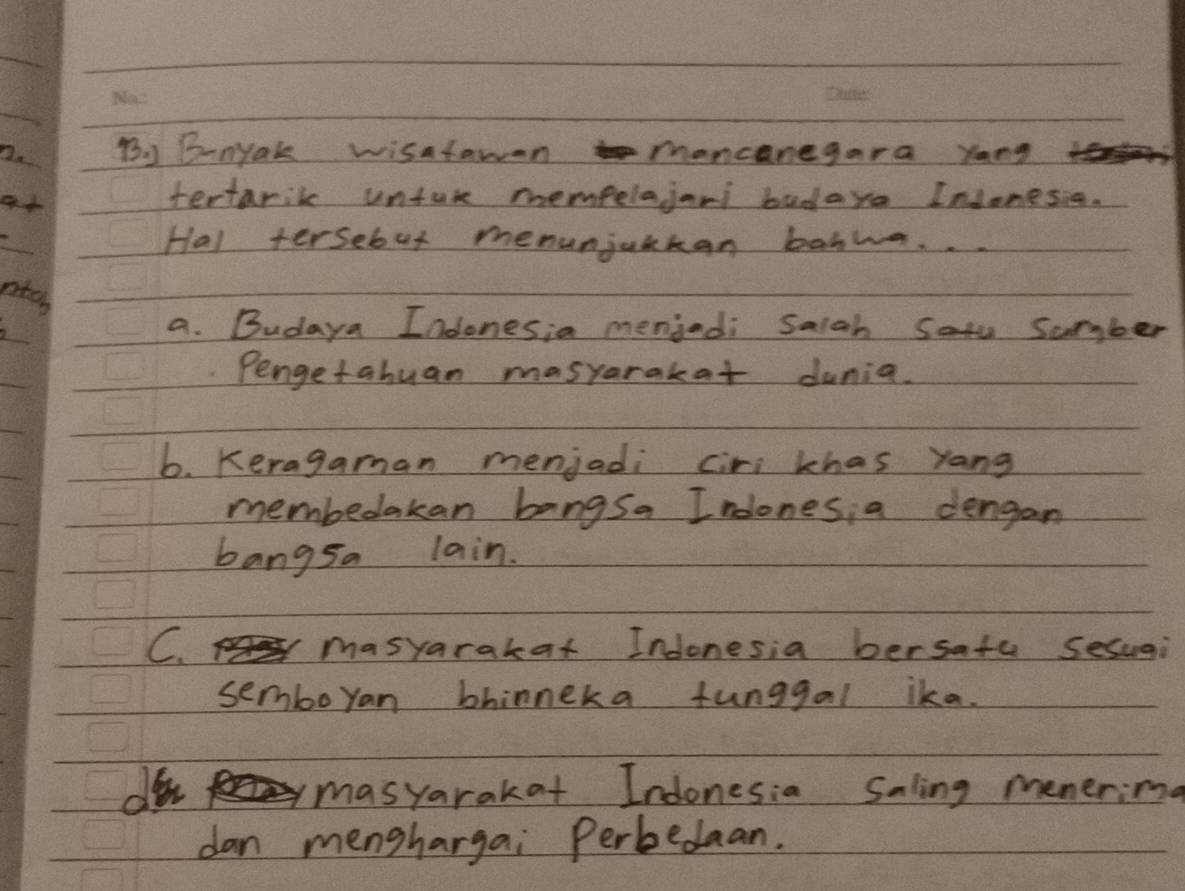 No.: Date:
13.) Banyak wisatawan mancanegara yang
tertarik untuk mempelajari budaya Indonesia.
Hal tersebut menunjukkan bahwa...
a. Budaya Indonesia menjadi salah satu sumber
Pengetahuan masyarakat dunia.
b. Keragaman menjadi ciri khas yang
membedakan bangsa Indonesia dengan
bangsa lain.
C. masyarakat Indonesia bersatu sesuai
semboyan bhinneka tunggal ika.
d. masyarakat Indonesia saling menerima
dan menghargai Perbedaan.